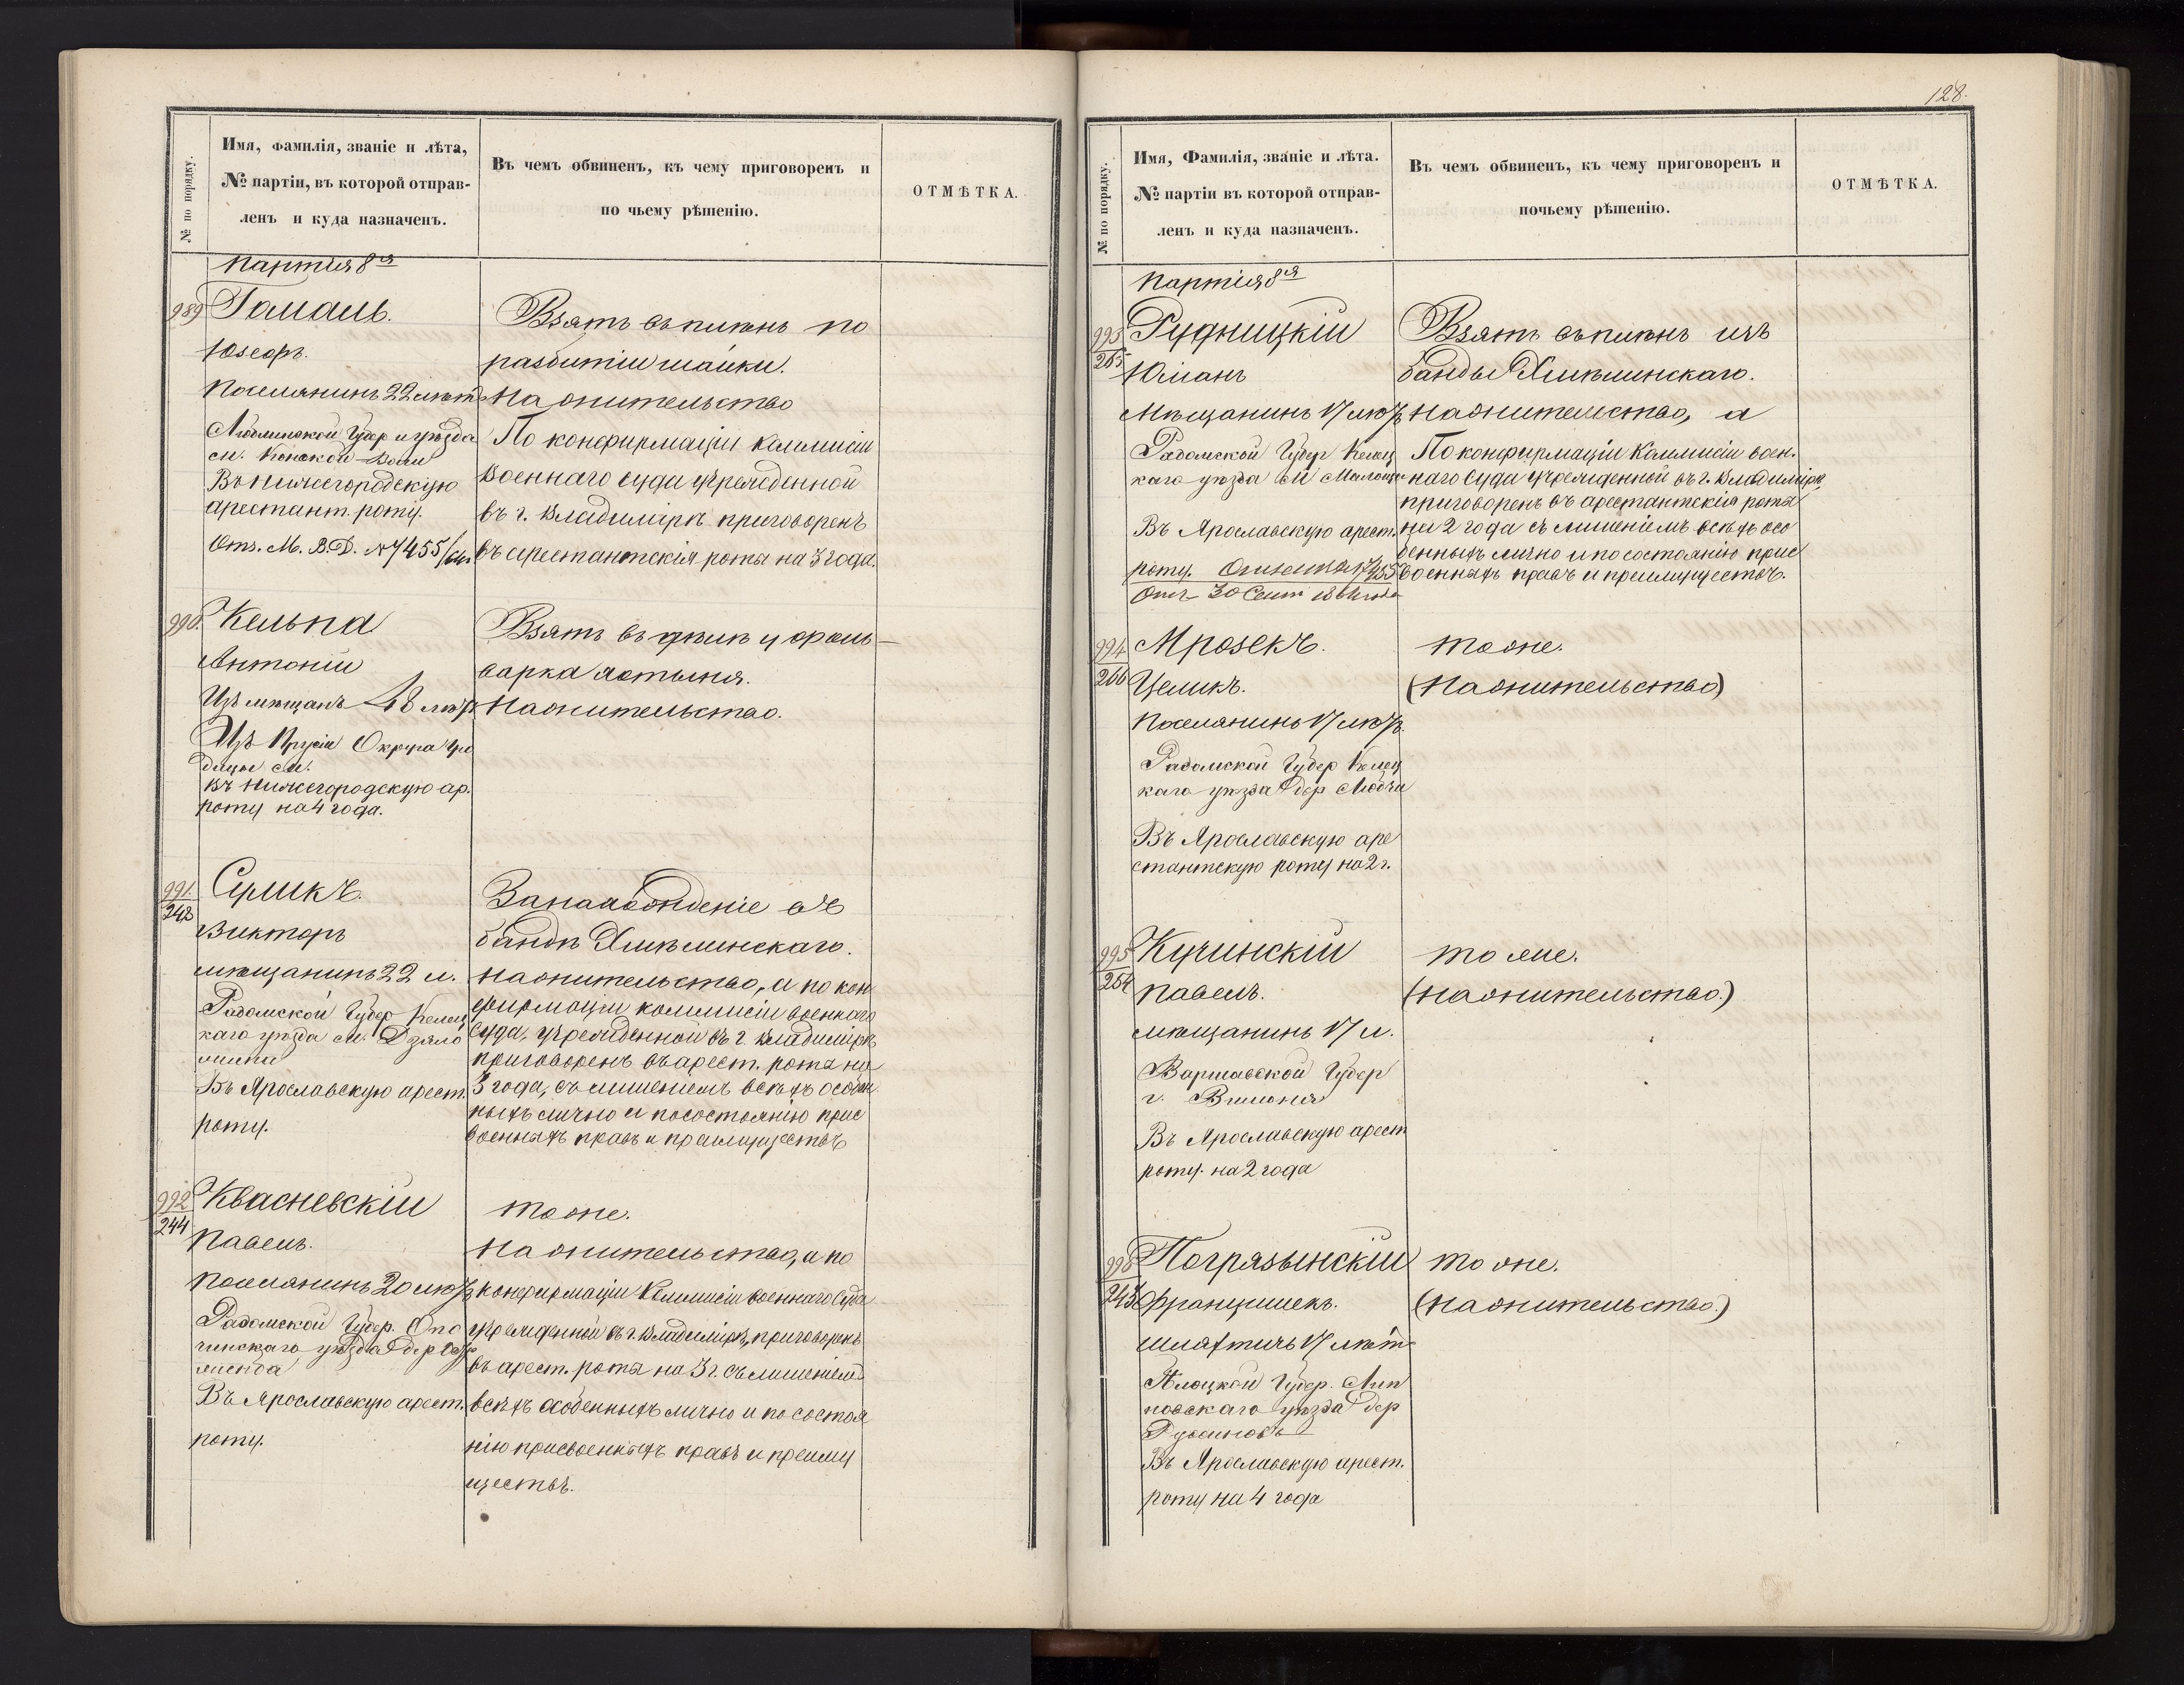 № по порядку.
Имя, фамилія, званіе и лѣта,
№ партіи, въ которой отправ-
ленъ и куда назначенъ.
Въ чемъ обвиненъ, къ чему приговоренъ и
по чьему рѣшенію.
ОТМѢТКА.
Партія 8я
989
Гамаль.
Юзефъ.
Поселянинъ 22 лѣтъ
Люблинской Губер и уѣзда
м. Конской Воли
Въ Нижегородскую
арестант. роту.
Отз. М. В. Д. №7455/
Взятъ въ плѣнъ по
разбитіи шайки.
На жительство
По конфирмаціи Коммисіи
Военнаго суда учрежденной
въ г. Владимірѣ приговоренъ
въ арестантскія роты на 3 года.
990.
Кельпа
Антоній
Изъ мѣщанъ 48 лѣтъ
Изъ Прусіи Округа
м.
въ Нижегородскую ар.
роту на 4 года.
Взятъ въ у фоль-
варка
На жительство.
991.
242
Суликъ.
Викторъ
мѣщанинъ 22 л.
Радомской Губер Келец
каго уѣзда м. Дзяло
Въ Ярославскую арест.
роту.
За нахожденіе въ
бандѣ Хмѣлинскаго.
на жительство, а по кон
фирмаціи коммисіи военнаго
суда, учрежденной въ г. Владимірѣ
приговоренъ въ арест. роты на
3 года, съ лишеніемъ всѣхъ особен
ныхъ лично и по состоянію прис
военныхъ правъ и преимуществъ
992
244
Квасневскій
Павелъ.
Поселянинъ 20 лѣтъ
Радомской Губер. Опо
чинскаго уѣзда дер
Въ Ярославскую арест.
роту.
тоже.
На жительство, а по
конфирмаціи Коммисіи военнаго суда
учрежденной въ г. Владимірѣ, приговоренъ
въ арест. роты на 3 г. съ лишеніемъ
всѣхъ особенныхъ лично и по состоя
нію присвоенныхъ правъ и преиму
ществъ.
128.
№ по порядку.
Имя, Фамилія, званіе и лѣта.
№ партіи въ которой отправ-
ленъ и куда назначенъ.
Въ чемъ обвиненъ, къ чему приговоренъ и
почьему рѣшенію.
ОТМѢТКА.
Партія 8я
993
265
Рудницкій
Юліанъ
Мѣщанинъ 17 лѣтъ
Радомской Губер Келец
каго уѣзда
Въ Ярославскую арест.
роту. 7455
30 Сент 1864 года
Взятъ въ плѣнъ изъ
банды Хмѣлинскаго.
На жительство, а
По конфирмаціи Коммисіи воен.
наго Суда учрежденной въ г. Владимірѣ,
приговоренъ въ арестантскія роты
на 2 года съ лишеніемъ всѣхъ осо
бенныхъ лично и по состоянію прис
военныхъ правъ и преимуществъ.
994
266
Мрозекъ.
Целикъ.
Поселянинъ 17 лѣтъ.
Радомской Губер Келец
каго уѣзда дер
Въ Ярославскую аре
стантскую роту на 2 г.
тоже.
(На жительство)
995
254
Кучинскій
Павелъ.
мѣщанинъ 17 л.
Варшавской Губер
г.
Въ Ярославскую арест
роту. на 2 года
тоже.
(на жительство.)
996
245
Погрязынскій
Францишекъ.
шляхтичъ 17 лѣтъ
Плоцкой Губер. Лип
новскаго уѣзда дер
Въ Ярославскую арест.
роту на 4 года
тоже.
(На жительство.)